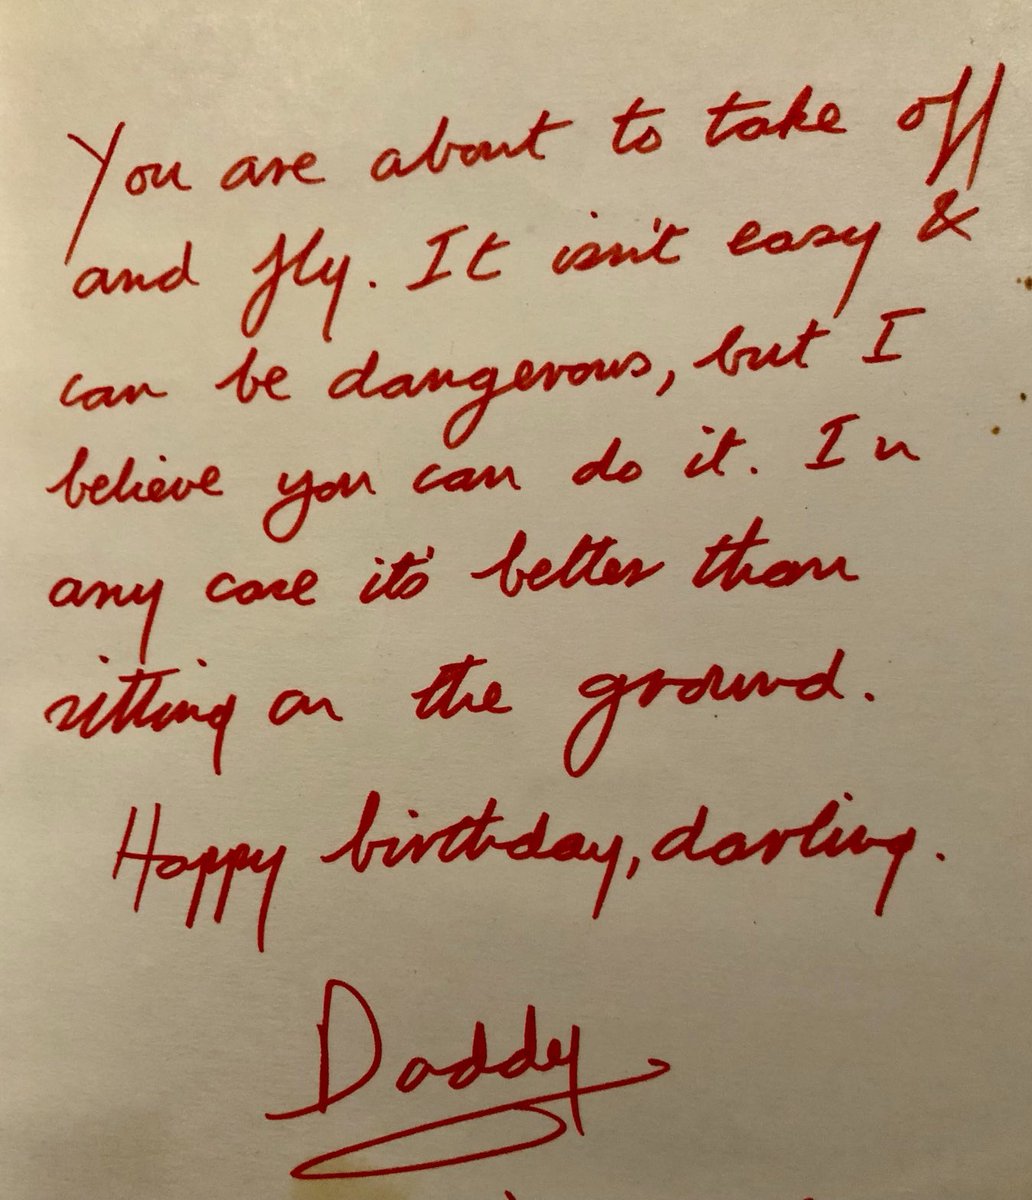 You are about to take off
and fly. It isn't easy &
can be dangerous, but I
believe you can do it. In
any case it's better than
sitting on the ground.
Happy birthday, darling.
Daddy